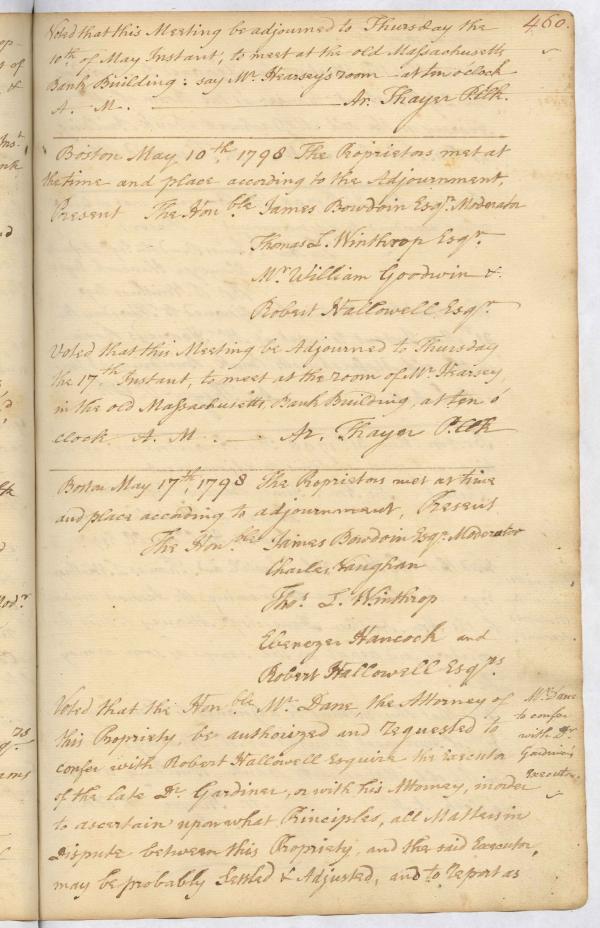 460.
Voted that this Meeting be adjourned to Thursday the
10th of May Instant, to meet at the old Massachusetts
Bank Building: say Mr. Hearsey's room — at ten o'clock
A. M. — Ar. Thayer P. Clk.
Boston May 10th, 1798 The Proprietors met at
the time and place according to the Adjournment,
Present The Honble James Bowdoin Esqr. Moderator
Thomas L. Winthrop Esqr.
Mr. William Goodwin &
Robert Hallowell Esqr.
Voted that this Meeting be Adjourned to Thursday
the 17th Instant, to meet at the room of Mr. Hearsey,
in the old Massachusetts Bank Building, at ten o'
clock A. M. — Ar. Thayer P. Clk
Boston May 17th, 1798 The Proprietors met at time
and place according to adjournment, Present
The Honble James Bowdoin Esqr. Moderator
Charles Vaughan
Thos. L. Winthrop
Ebenezer Hancock and
Robert Hallowell Esqrs.
Voted that the Honble Mr. Dane, the Attorney of
this Propriety, be authorized and requested to
confer with Robert Hallowell Esquire the Executor
of the late Dr. Gardiner, or with his Attorney, in order
to ascertain upon what Principles, all Matters in
Dispute between this Propriety, and the said Executor,
may be probably Settled & Adjusted, and to report as
Mr. Dane
to confer
with Dr.
Gardiner's
Executor.